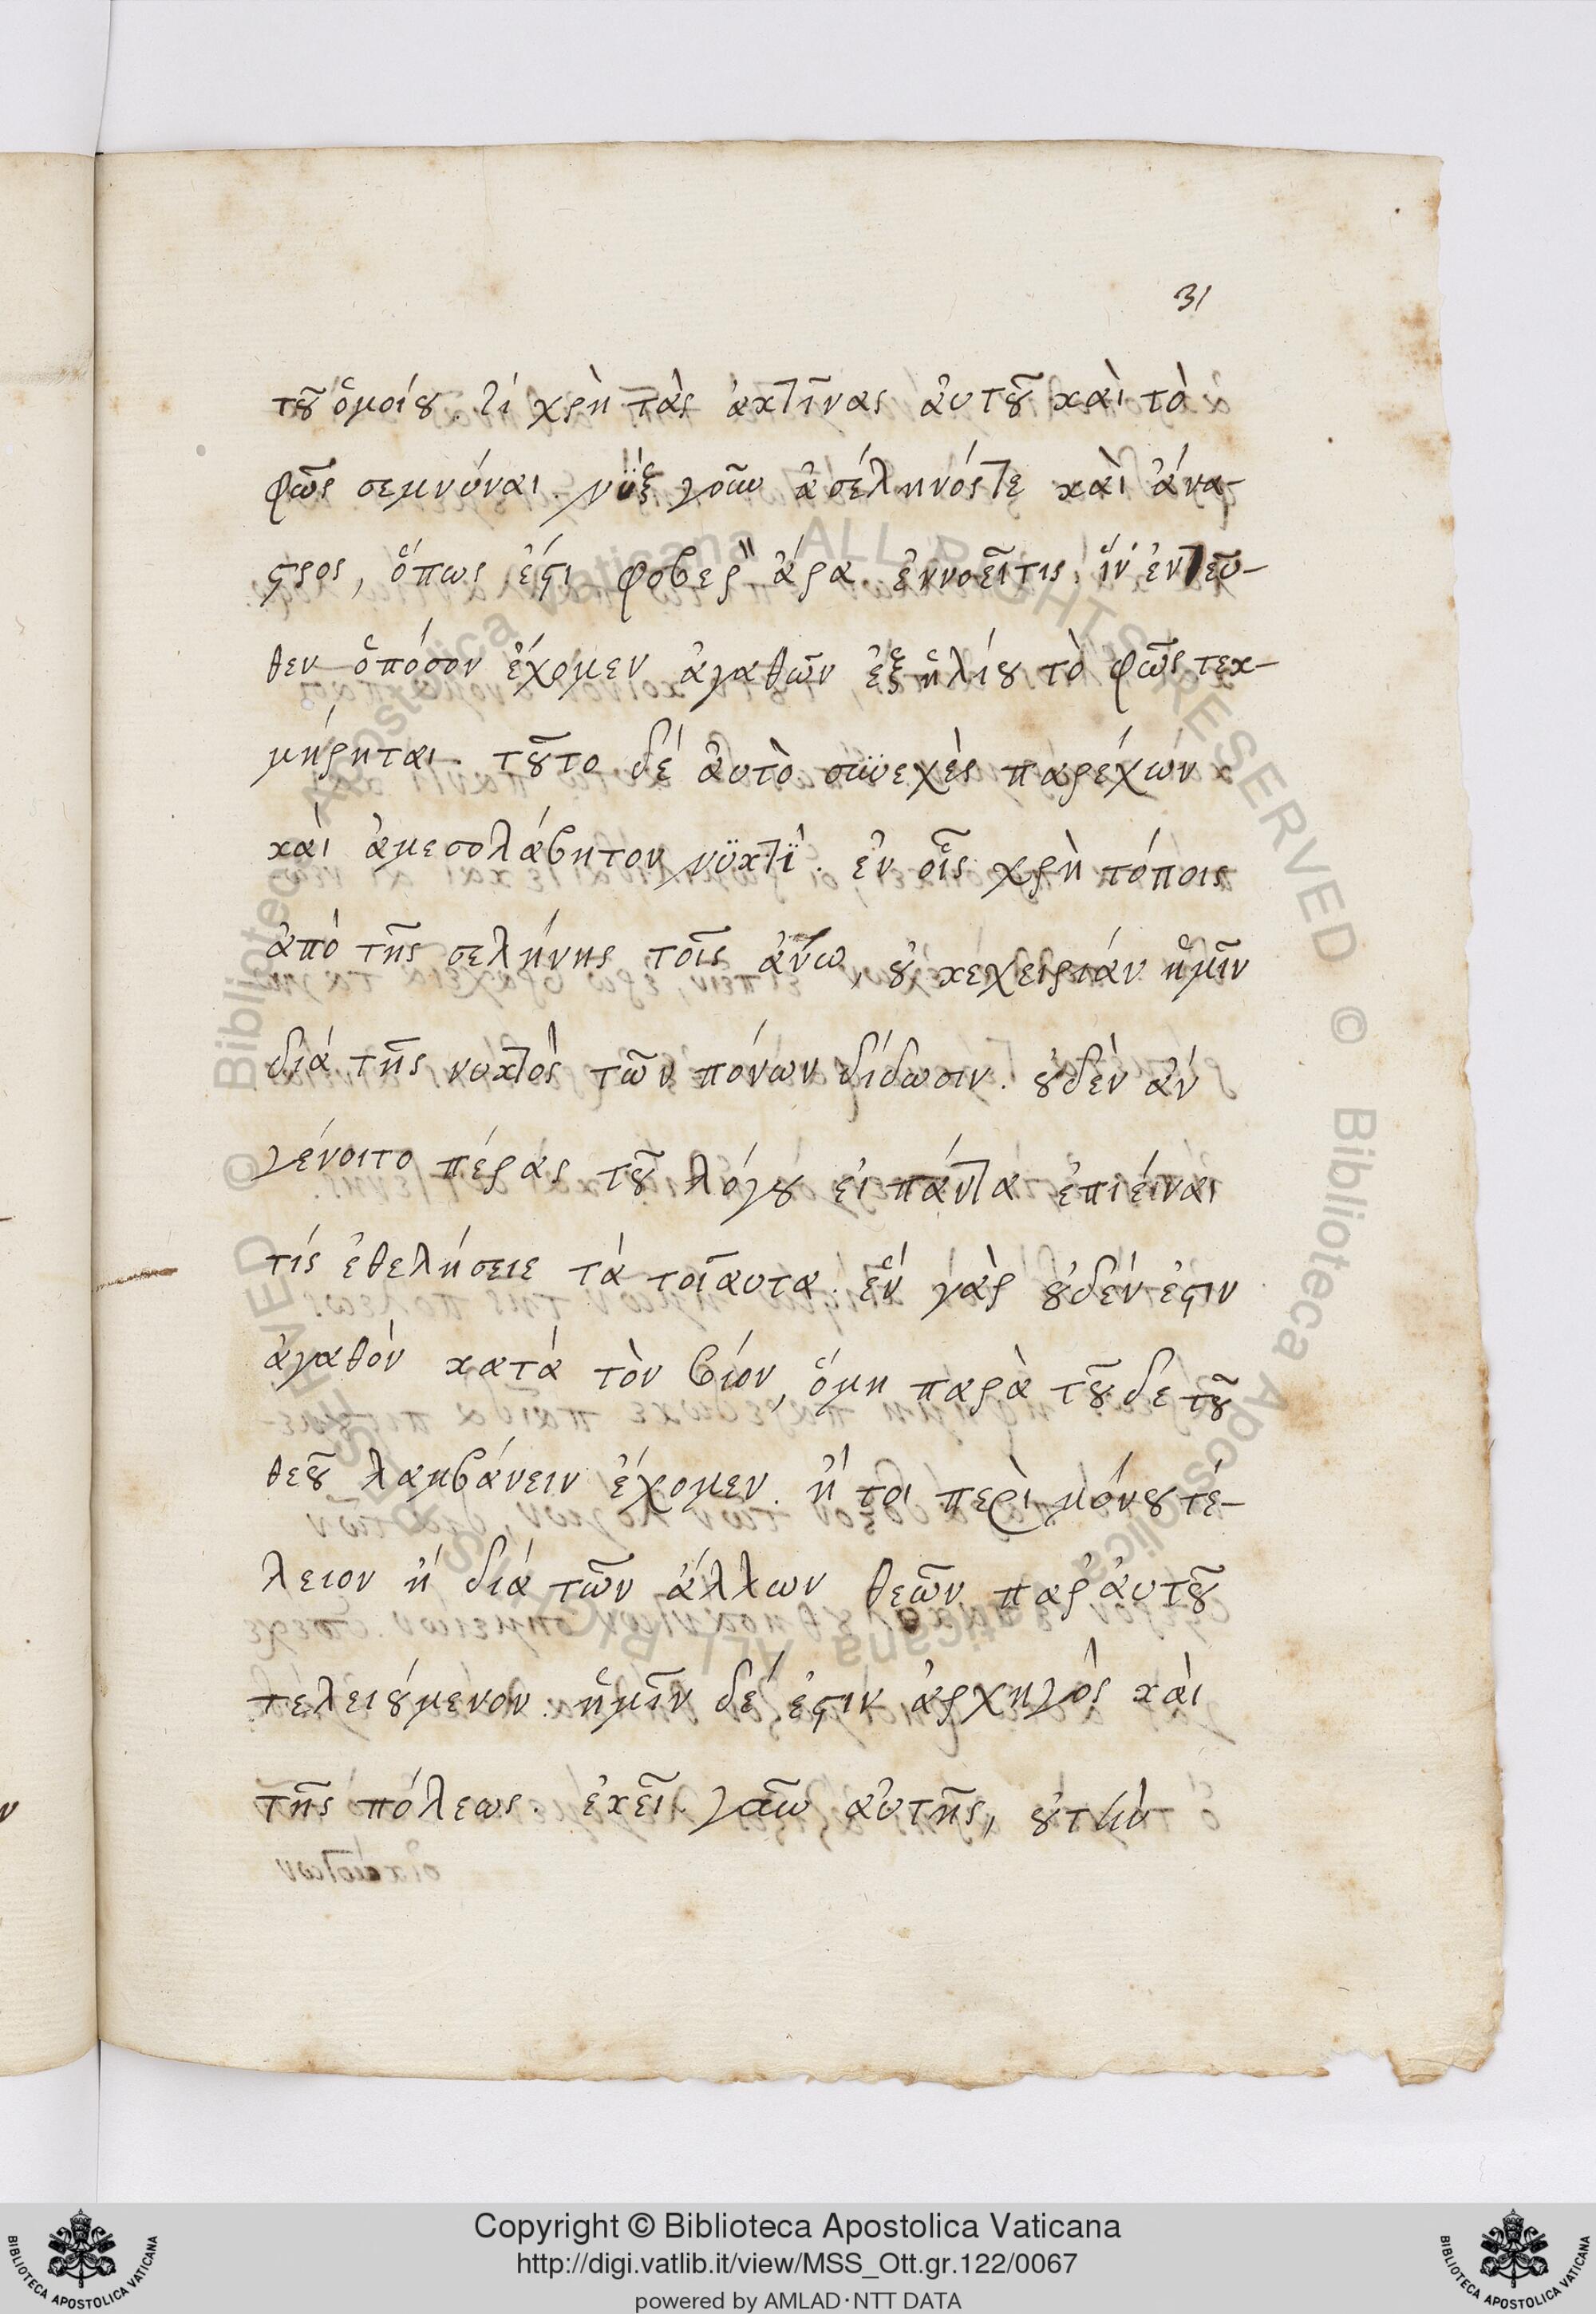 31
τοῦ ὁμοίου. τί χρὴ τὰς ἀκτῖνας ἀυτοῦ καὶ τὸ
φῶς σεμνύναι. νύξ γοῦν ἀσέληνόστε καὶ ἄνα-
στρος, ὅπως ἐστι φοβερ" ἄρα ἐννοεῖτις, ἵν' ἐντεῦ-
θεν ὁπόσον ἔχομεν ἀγαθῶν ἐξ ἡλίου τὸ φῶς τεκ-
μήρηται. τοῦτο δέ ἀυτὸ συνεχὲς παρέχων
καὶ ἀμεσολάβητον νϋκτί. ἐν οἷς χρὴ τόποις
ἀπό τῆς σελήνης τοῖς ἄνω, οὐ κεχειρίάν ἡμῖν
διά τῆς νυκτὸς τῶν πόνων δίδωσιν. οὐδὲν ἄν
γένοιτο πέρας τοῦ λόγου εἰ πάντα ἐπιέιναι
τίς ἐθελήσειε τά τοῖαυτα. ἕν γὰρ οὐδέν ἐστιν
ἀγαθόν κατά τὸν βίον, ὅμη παρὰ τοῦδε τοῦ
θεοῦ λαμβάνειν ἔχομεν. ἤ τοι περὶ μόνου τέ-
λειον ἤ διά τῶν ἄλλων θεῶν παρ ἀυτοῦ
τελειούμενον. ἡμῖν δέ ἐστιν ἀρχηγός καὶ
τῆς πόλεως. ἐκεῖ γοῦν ἀυτῆς, οὐ τὴν
Copyright © Biblioteca Apostolica Vaticana
http://digi.vatlib.it/view/MSS_Ott.gr.122/0067
powered by AMLAD·NTT DATA